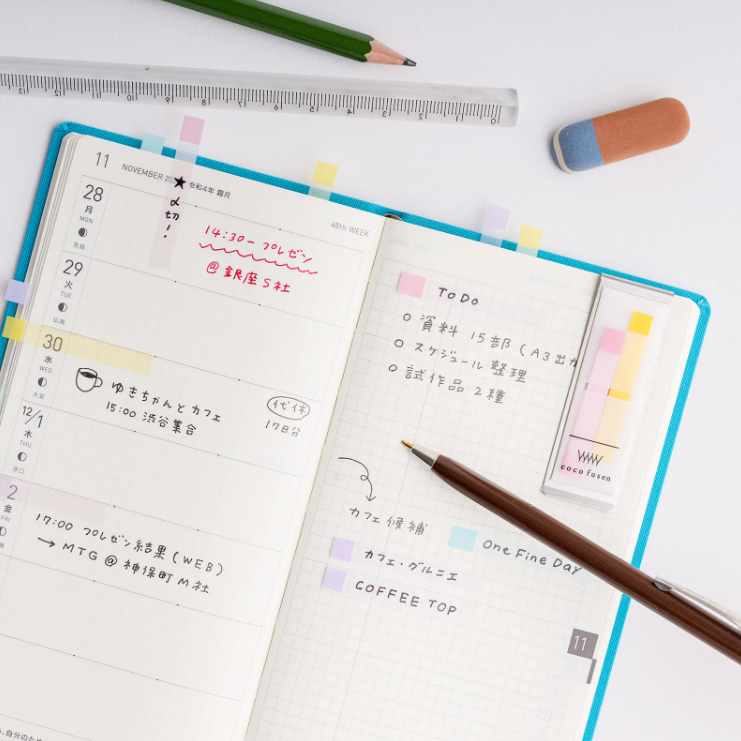 11
NOVEMBER
令和4年 霜月
48th WEEK
28
月
MON
★〆切!
14:30- プレゼン
@ 銀座S社
29
火
TUE
仏滅
30
水
WED
大安
ゆきちゃんとカフェ
15:00 渋谷集合
代休
17日分
12/1
木
THU
赤口
2
金
FRI
17:00 プレゼン結果(WEB)
→ MTG @ 神保町M社
TODO
資料 15部(A3出力
スケジュール整理
試作品 2種
カフェ候補
One Fine Day
カフェ・グルニエ
COFFEE TOP
coco fusen
11
0 1 2 3 4 5 6 7 8 9 10 11 12 13